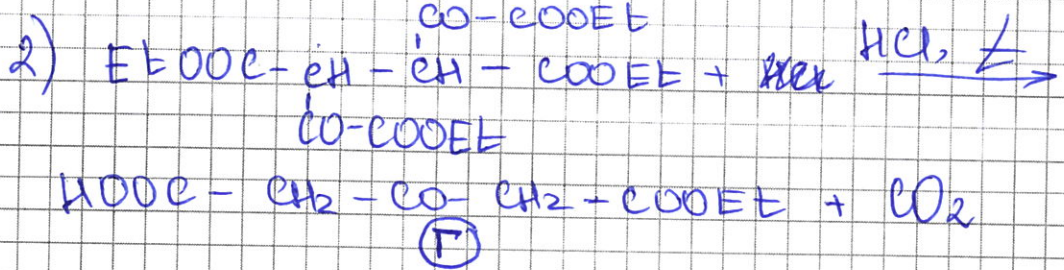 CO-COOEt
2) EtOOC-CH-CH-COOEt + HCl, t
CO-COOEt
HOOC-CH2-CO-CH2-COOEt + CO2
Г